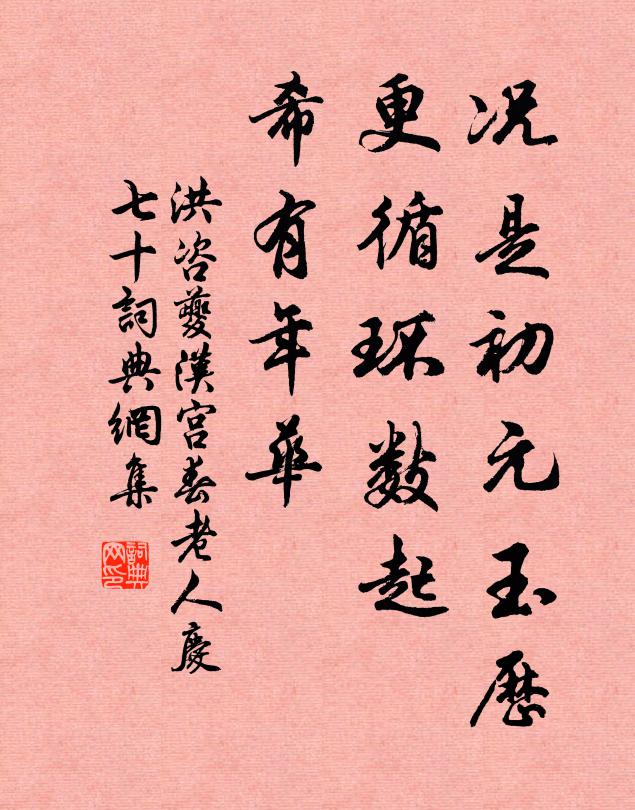 况是初元玉历
更循环数起
希有年华
洪咨夔漢宫春老人慶
七十詞典網集
詞典
网印